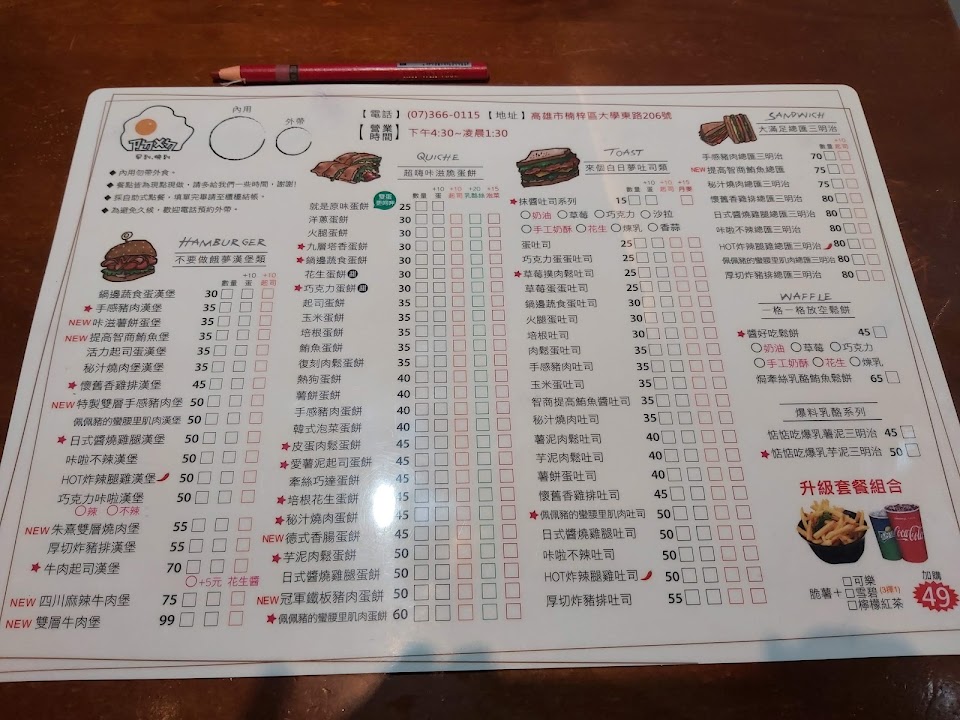 內用
外帶
【電話】(07)366-0115【地址】高雄市楠梓區大學東路206號
【營業時間】下午4:30~凌晨1:30
◆ 內用勿帶外食。
◆ 餐點皆為現點現做，請多給我們一些時間，謝謝!
◆ 採自助式點餐，填單完畢請至櫃檯結帳。
◆ 為避免久候，歡迎電話預約外帶。
HAMBURGER
不要做餓夢漢堡類
數量 +10蛋 +10起司
鍋邊蔬食蛋漢堡 30
★手感豬肉漢堡 35
NEW咔滋薯餅蛋堡 35
NEW提高智商鮪魚堡 35
活力起司蛋漢堡 35
秘汁燒肉蛋漢堡 35
★懷舊香雞排漢堡 45
NEW特製雙層手感豬肉堡 50
佩佩豬的蠻腰里肌肉漢堡 50
★日式醬燒雞腿漢堡 50
咔啦不辣漢堡 50
HOT炸辣腿雞漢堡 50
巧克力咔啦漢堡 50
○辣 ○不辣
NEW朱熹雙層燒肉堡 55
厚切炸豬排漢堡 55
★牛肉起司漢堡 70
○+5元 花生醬
NEW四川麻辣牛肉堡 75
NEW雙層牛肉堡 99
QUICHE
超嗨咔滋脆蛋餅
數量 +10蛋 +10起司 +20乳酪絲 +15泡菜
就是原味蛋餅 25
洋蔥蛋餅 30
火腿蛋餅 30
★九層塔香蛋餅 30
★鍋邊蔬食蛋餅 30
花生蛋餅 30
★巧克力蛋餅 30
起司蛋餅 35
玉米蛋餅 35
培根蛋餅 35
鮪魚蛋餅 35
復刻肉鬆蛋餅 35
熱狗蛋餅 40
薯餅蛋餅 40
手感豬肉蛋餅 40
韓式泡菜蛋餅 40
★皮蛋肉鬆蛋餅 45
★愛薯泥起司蛋餅 45
牽絲巧達蛋餅 45
★培根花生蛋餅 45
★秘汁燒肉蛋餅 45
NEW德式香腸蛋餅 45
★芋泥肉鬆蛋餅 50
日式醬燒雞腿蛋餅 50
NEW冠軍鐵板豬肉蛋餅 50
★佩佩豬的蠻腰里肌肉蛋餅 60
TOAST
來個白日夢吐司類
數量 +10蛋 +10起司 +15丹麥
★抹醬吐司系列 15
○奶油 ○草莓 ○巧克力 ○沙拉
○手工奶酥 ○花生 ○煉乳 ○香蒜
蛋吐司 25
巧克力蛋蛋吐司 25
★草莓摸肉鬆吐司 25
草莓蛋蛋吐司 25
鍋邊蔬食蛋吐司 35
火腿蛋吐司 30
培根吐司 30
肉鬆蛋吐司 35
手感豬肉吐司 35
玉米蛋吐司 35
智商提高鮪魚醬吐司 35
秘汁燒肉吐司 35
薯泥肉鬆吐司 40
芋泥肉鬆吐司 40
薯餅蛋吐司 40
懷舊香雞排吐司 45
★佩佩豬的蠻腰里肌肉吐司 50
日式醬燒雞腿吐司 50
咔啦不辣吐司 50
HOT炸辣腿雞吐司 50
厚切炸豬排吐司 55
SANDWICH
大滿足總匯三明治
數量 +10起司
手感豬肉總匯三明治 70
NEW提高智商鮪魚總匯 75
秘汁燒肉總匯三明治 75
懷舊香雞排總匯三明治 80
日式醬燒雞腿總匯三明治 80
咔啦不辣總匯三明治 80
HOT炸辣腿雞總匯三明治 80
佩佩豬的蠻腰里肌肉總匯三明治 80
厚切炸豬排總匯三明治 80
WAFFLE
一格一格放空鬆餅
★醬好吃鬆餅 45
○奶油 ○草莓 ○巧克力
○手工奶酥 ○花生 ○煉乳
焗牽絲乳酪鮪魚鬆餅 65
爆料乳酪系列
惦惦吃爆乳薯泥三明治 45
★惦惦吃爆乳芋泥三明治 50
升級套餐組合
Coca-Cola
脆薯+ □可樂
□雪碧(3擇1)
□檸檬紅茶
加購
49